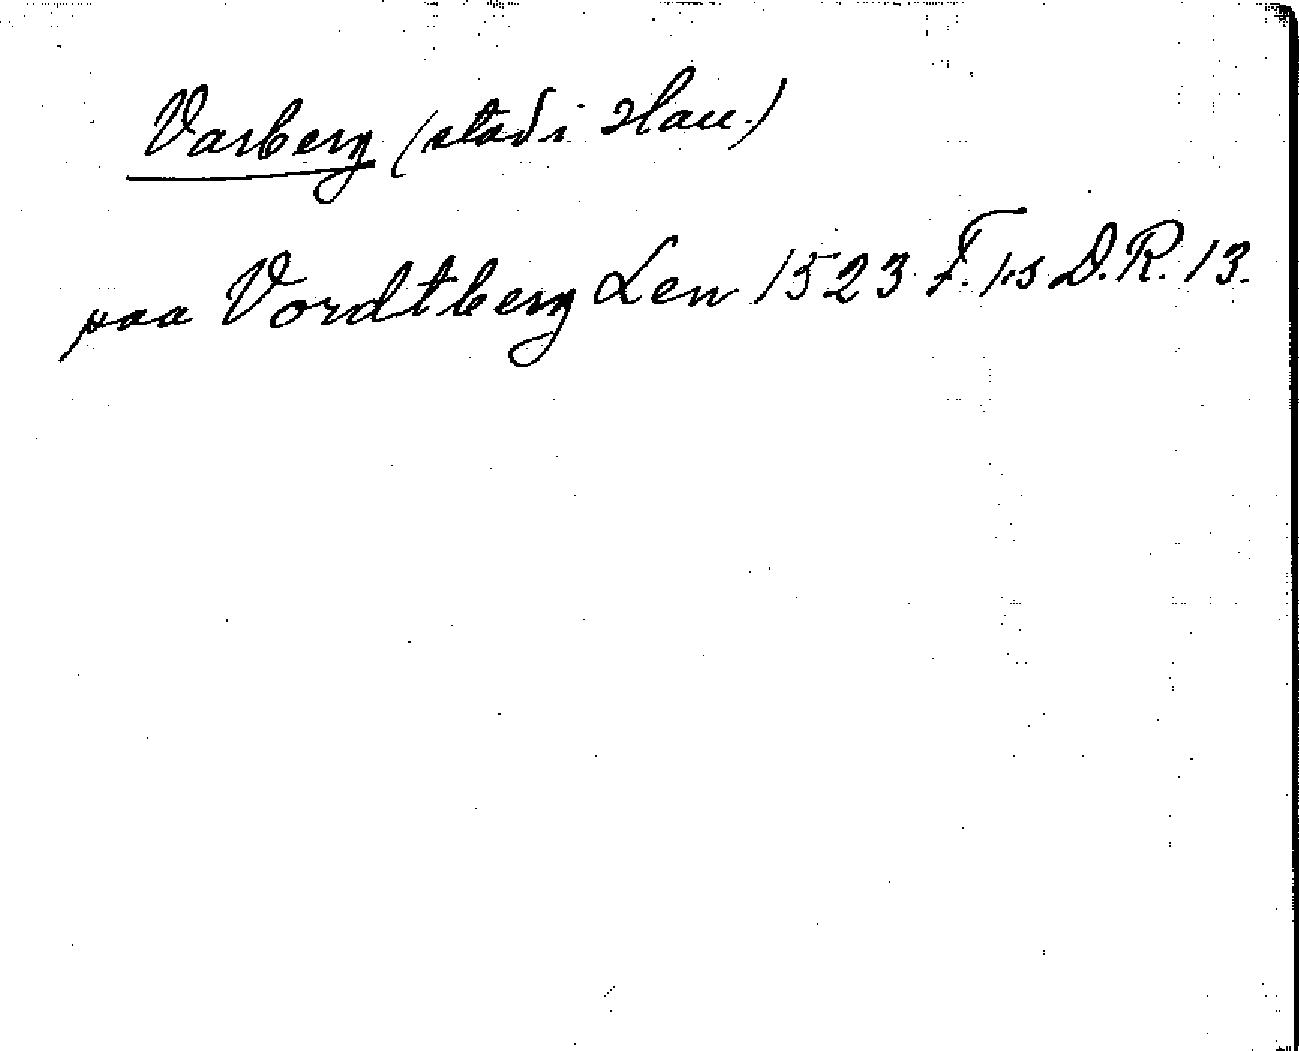 Varberg (stad i Hall.)
paa Vordtberg Len 1523 F. 1:s D.R. 13.